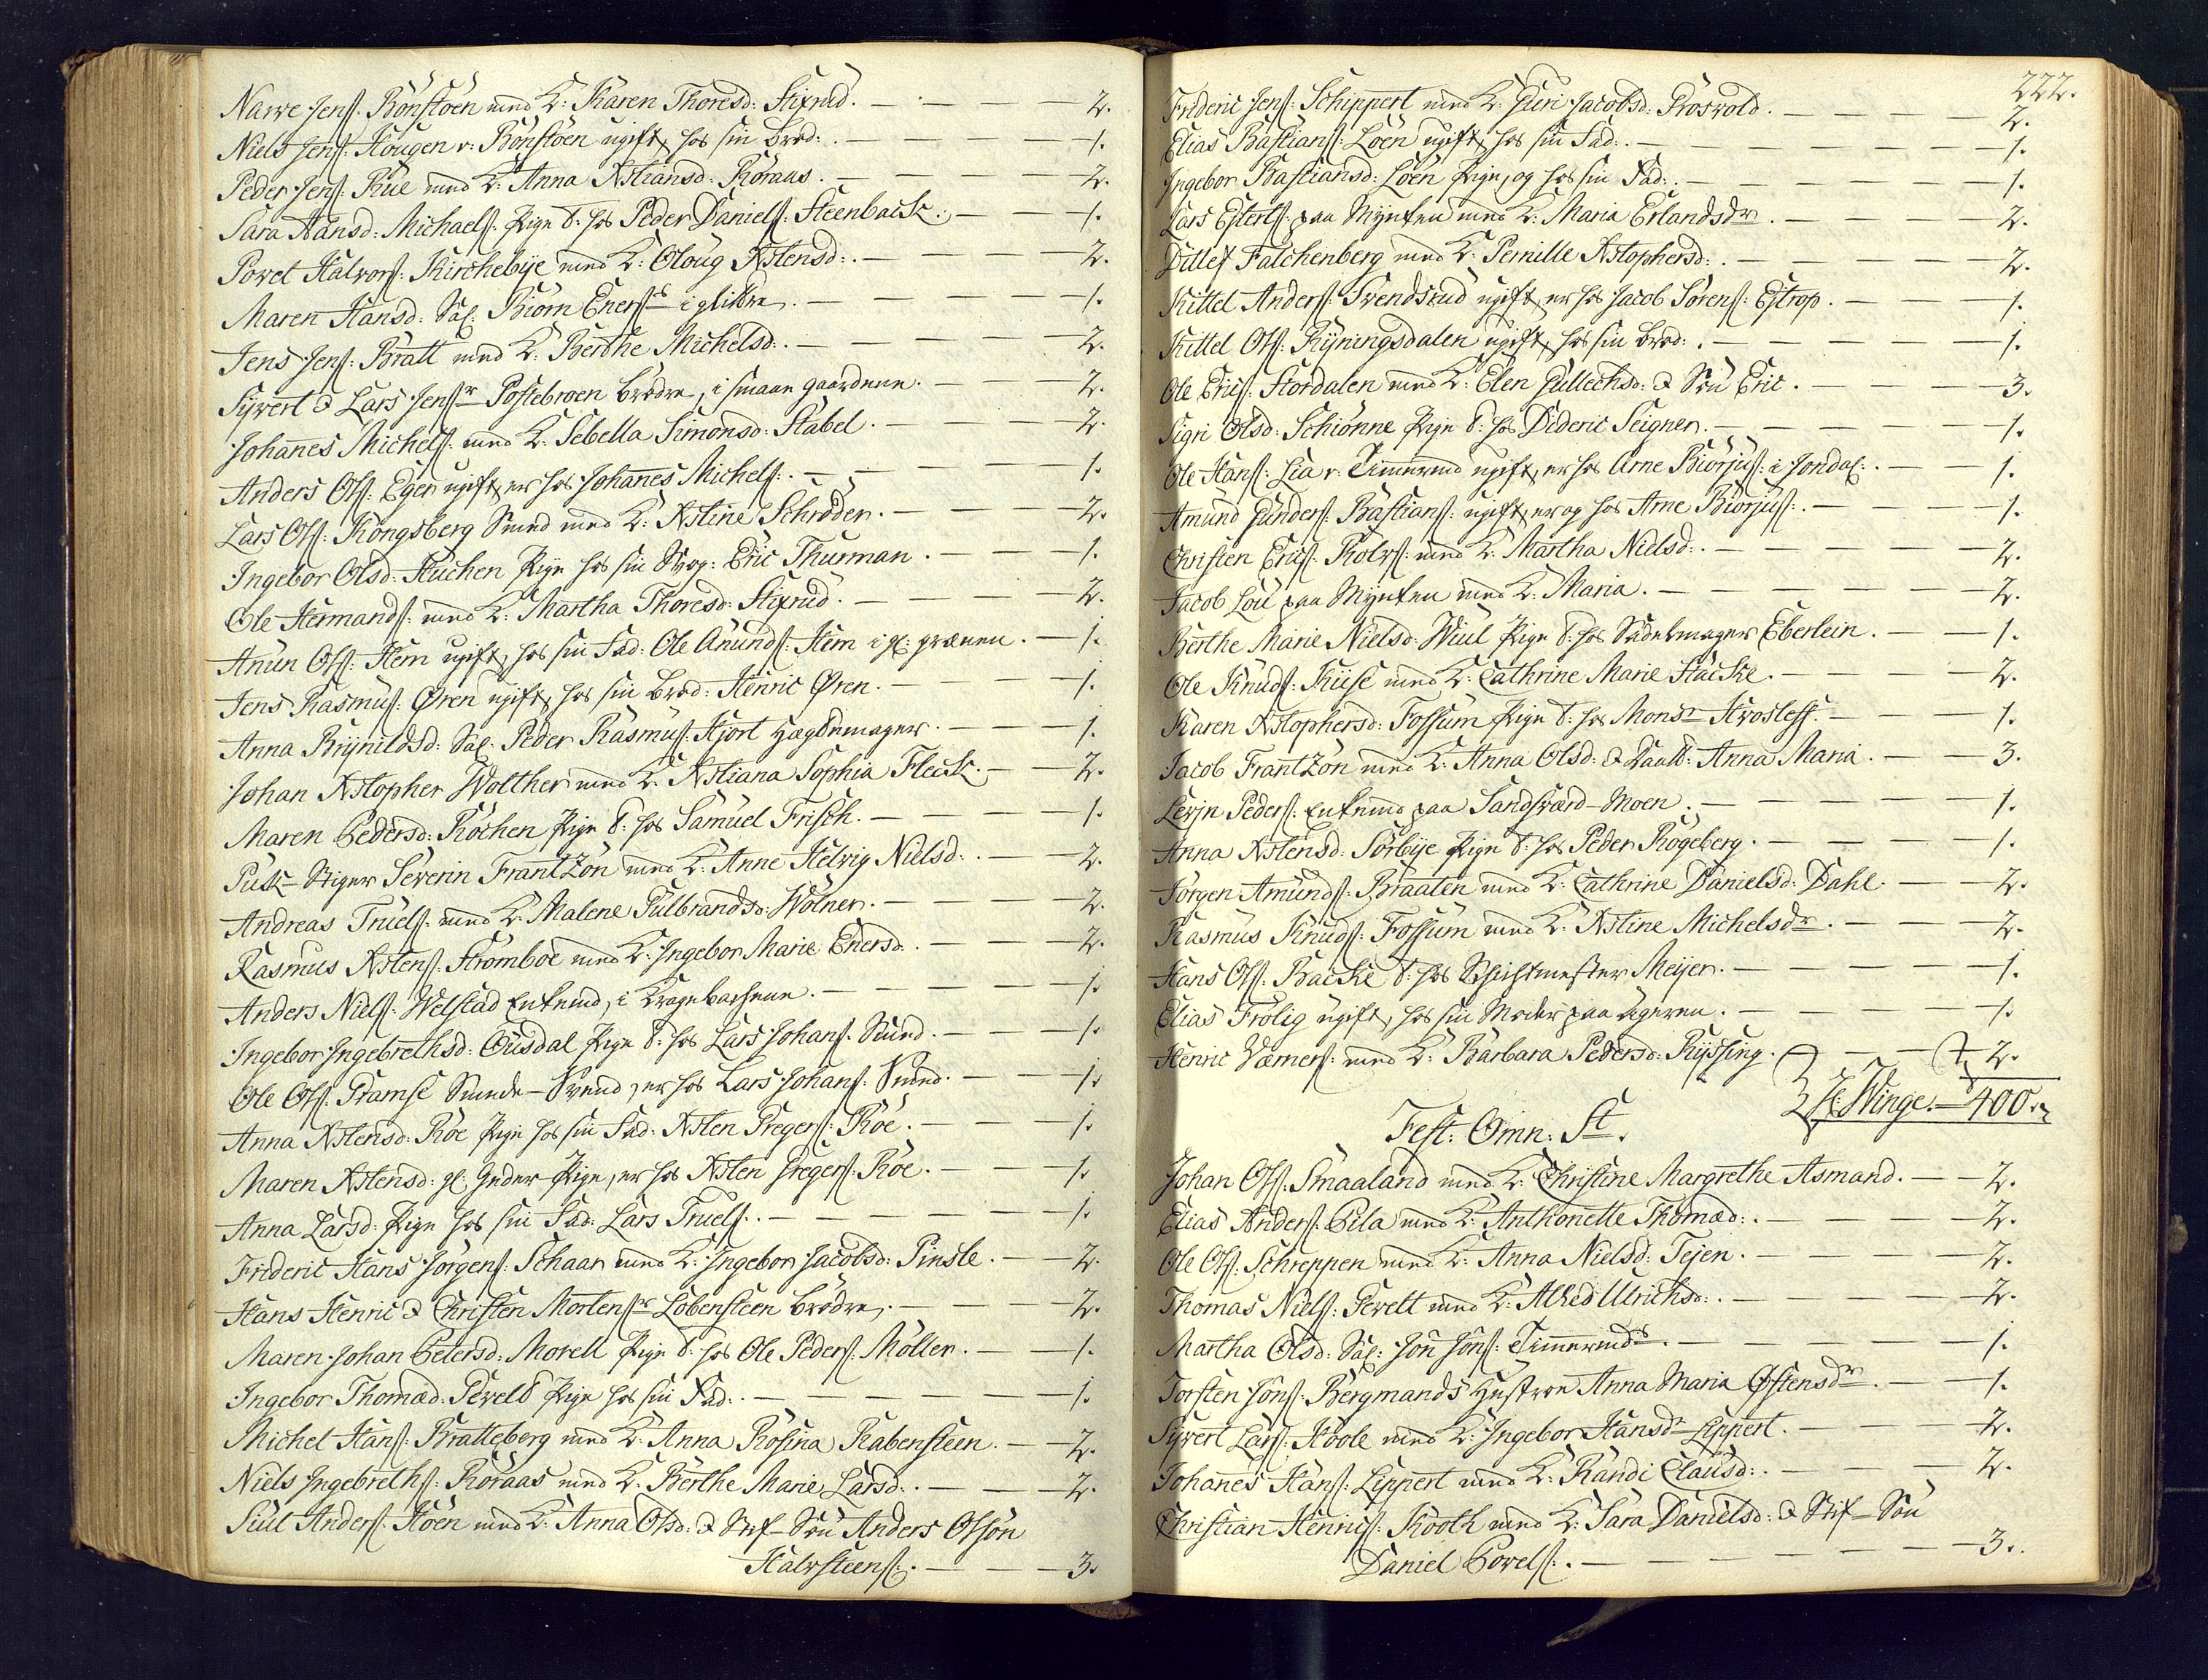 Narve Jenſ: Bönstöen med K: Karen Thoresd: Stixrud. — — — — 2.
Niels Jenſ: Hougen v: Bönstöen ugift, hos sin brod: . — — — — 1.
Peder Jenſ: Rue med K: Anna Xstiansd: Röraas. — — — — 2.
Sara Hansd: Michaelſ: Pige t: hos Peder Danielſ: Steenback. — — 1.
Povel Halvorſ: Kirchebÿe med K: Oloug Xstensd: . — — — — 2.
Maren Hansd: Sal: Biörn Enerſs i glittre. — — — — 1.
Jens Jenſ: Bratt med K: Berthe Michelsd: . — — — — 2.
Sÿvert & Lars Jenſr Postebroen brödre, i smaae gaardene. — — 2.
Johanes Michelſ: med K: Sebella Simonsd: Stabel. — — — — 2.
Anders Olſ: Eger ugift, er hos Johanes Michelſ: . — — — — 1.
Lars Olſ: Kongsberg Smed med K: Xstine Schröder. — — — — 2.
Ingebor Olsd: Stuchen Pige hos sin Svog: Eric Thurman. — — 1.
Ole Hermandſ: med K: Martha Thoresd: Stixrud. — — — — 2.
Anun Olſ: Hem ugift, hos sin Fad: Ole Anundſ: Hem i gl: grænen. — 1.
Jens Rasmuſ: Øren ugift, hos sin brod: Henric Øren. — — — 1.
Anna Brÿnildsd: Sal: Peder Rasmuſ: Hjort Hægtemager. — — 1.
Johan Xstopher Wolther med K: Xstiana Sophia Fleck. — — 2.
Maren Pedersd: Röchen Pige t: hos Samuel Frisch. — — — 1.
Puk-Stiger Severin Frantzön med K: Anne Helvig Nielsd: . — — 2.
Andreas Truelſ: med K: Malene Gulbrandsd: Wolner. — — — 2.
Rasmus Xstenſ: Strömboe med K: Ingebor Marie Enersd. — — 2.
Anders Nielſ: Welstad Enkemd, i Kragebachene. — — — — 1.
Ingebor Ingebrethsd: Ousdal Pige t: hos Lars Johanſ: Smed. — — 1.
Ole Olſ: Gramse Smede-Svend, er hos Lars Johanſ: Smed. — — 1.
Anna Xstensd: Röe Pige hos sin Fad: Xsten Gregerſ: Röe. — — 1.
Maren Xstensd: gl: Gader Pige, er hos Xsten Gregerſ: Röe. — — 1.
Anna Larsd: Pige hos sin Fad: Lars Truelſ: . — — — — 1.
Frideric Hans Jörgenſ: Schaar med K: Ingebor Jacobsd: Pinsle. — — 2.
Hans Henric & Christen Mortenſr Löbensteen brödre. — — — 2.
Maren Johan Petersd: Morell Pige t: hos Ole Pederſ: Möller. — — 1.
Ingebor Thomæd: Gevelt Pige hos sin Fad: . — — — — 1.
Michel Hanſ: Bratteberg med K: Anna Rosina Rabensteen. — — 2.
Niels Ingebrethſ: Röraas med K: Berthe Marie Larsd: . — — 2.
Siul Anderſ: Höen med K: Anna Olsd: & Stif-Sön Anders Olssön
Halvsteenſ: . — — 3.
222.
Frideric Jenſ: Schippert med K: Guri Jacobsd: Rosvold. — — — — 2.
Elias Bastianſ: Löen ugift, hos sin Fad: . — — — — 1.
Ingebor Bastiansd: Löen Pige, og hos sin Fad: . — — — — 1.
Lars Estertſ: paa Mÿnten med K: Maria Erlandsdr. — — — — 2.
Ditlef Falchenberg med K: Pernille Xstophersd: . — — — — 2.
Kittel Anderſ: Svendsrud ugift, er hos Jacob Sörenſ: Estrop. — — 1.
Kittel Olſ: Rÿningsdalen ugift, hos sin brod: . — — — — 1.
Ole Ericſ: Stordalen med K: Elen Gullechsd: & Sön Eric. — — — 3.
Sigri Olsd: Schiönne Pige t: hos Dideric Seigner. — — — — 1.
Ole Hanſ: Lia v: Timermd ugift, er hos Arne Biörjuſ: i Jondal: . — — 1.
Amund Gunderſ: Bastianſ: ugift, er og hos Arne Biörjuſ: . — — 1.
Christen Ericſ: Rolvſ: med K: Martha Nielsd: . — — — — 2.
Jacob Löu paa Mÿnten med K: Maria. — — — — 2.
Berthe Marie Nielsd: Wiul Pige t: hos Sadelmager Eberlein. — — 1.
Ole Knudſ: Kuse med K: Cathrine Marie Hacke. — — — — 2.
Karen Xstophersd: Fossum Pige t: hos Monsr Hvosleff. — — — 1.
Jacob Frantzön med K: Anna Olsd: & Daatt: Anna Maria. — — 3.
Levin Pederſ: Enkemd paa Sandsværd-Moen. — — — — 1.
Anna Xstensd: Sörbÿe Pige t: hos Peder Rögeberg. — — — — 1.
Jörgen Amundſ: Braaten med K: Cathrine Danielsd: Dahl. — — 2.
Rasmus Knudſ: Fossum med K: Xstine Michelsdr. — — — 2.
Hans Olſ: Backe t: hos Schichtmester Meÿer. — — — — 1.
Elias Frölig ugift, hos sin Moder paa ageren. — — — — 1.
Henric Værnerſ: med K: Barbara Pedersd: Rÿssing. — — 2.
H: Winge. — 400.
Fest: Omn: St.
Johan Olſ: Smaaland med K: Christine Margrethe Asmand. — — 2.
Elias Anderſ: Pila med K: Anthonette Thomæd: . — — — — 2.
Ole Olſ: Schreppen med K: Anna Nielsd: Tejen. — — — — 2.
Thomas Nielſ: Gevelt med K: Alhed Ulrichsd: . — — — — 2.
Martha Olsd: Sal: Jön Jönſ: Timermds. — — — — 1.
Torsten Jönſ: Bergmands Hustroe Anna Maria Østensdr. — — 1.
Sÿvert Larſ: Hoole med K: Ingebor Hansdr Lippert. — — — 2.
Johanes Hanſ: Lippert med K: Randi Clausd: . — — — — 2.
Christian Henricſ: Kooth med K: Sara Danielsd: & Stif-Sön
Daniel Povelſ: . — — — — 3.